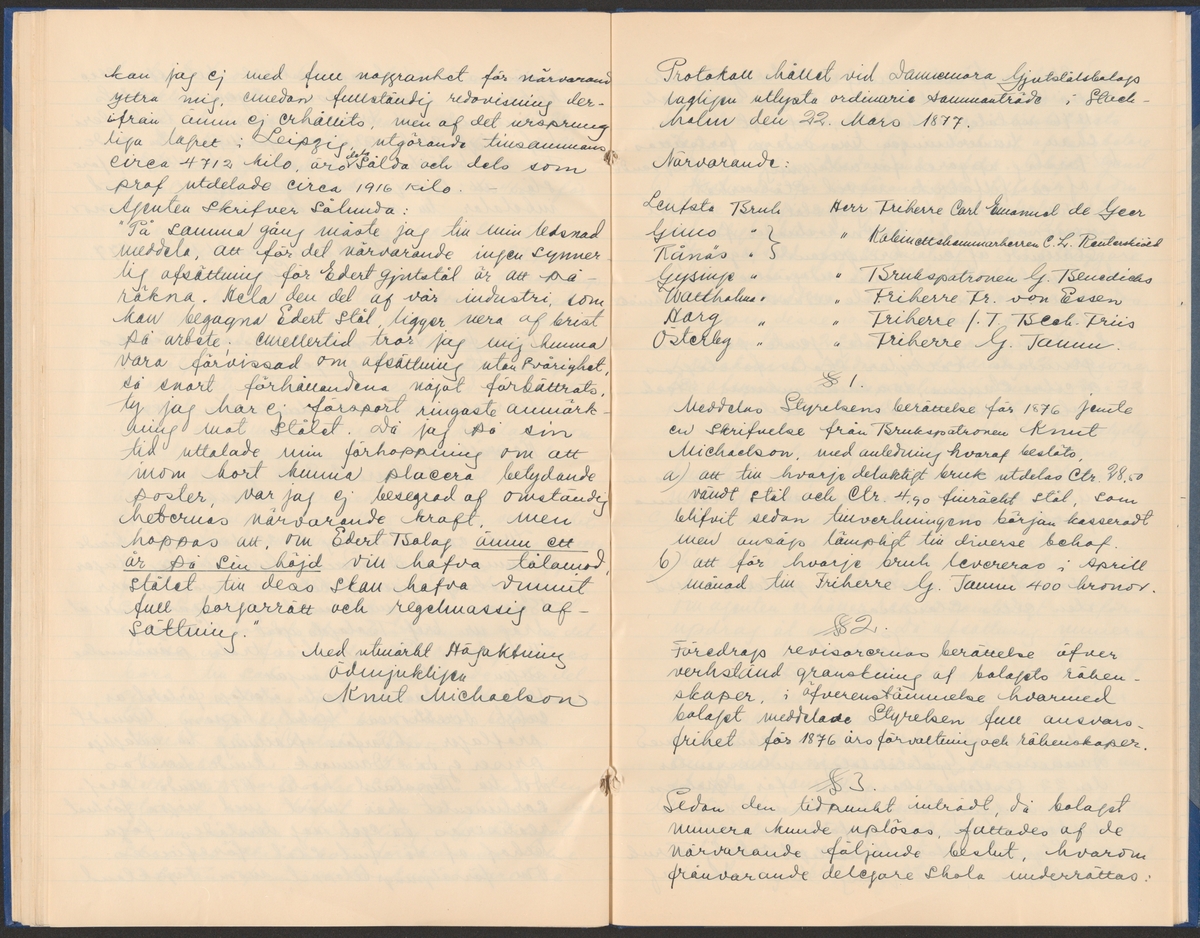 kan jag ej med full noggranhet för närvarand
yttra mig, emedan fullständig redovisning der-
ifrån ännu ej erhållits, men af det ursprung
liga lapet i Leipzig, utgörande tillsammans
circa 4712 kilo, äro dels sålda och dels som
prof utdelade circa 1916 kilo. -
Agenten skrifver sålunda:
"På samma gång måste jag till min ledsnad
meddela, att för det närvarande ingen synner
lig afsättning för Edert gjutstål är att på-
räkna. Hela den del af vår industri, som
kan begagna Edert stål, ligger nere af brist
på arbete; emellertid tror jag mig kunna
vara förvissad om afsättning utan svårighet,
så snart förhållandena något förbättrats,
ty jag har ej försport ringaste anmärk-
ning mot stålet. Då jag på sin
tid uttalade min förhoppning om att
inom kort kunna placera betydande
poster, var jag ej besegrad af omständig
heternas närvarande kraft, men
hoppas att, om Edert Bolag ännu ett
år på sin höjd vill hafva tålamod,
stålet till dess skall hafva vunnit
full borgarrätt och regelmässig af-
sättning."
Med utmärkt Högaktning
ödmjukligen
Knut Michaelson
Protokoll hållet vid Dannemora Gjutstålsbolags
lagligen utlysta ordinarie sammanträde i Stock-
holm den 22. Mars 1877.
Närvarande:
Leufsta Bruk Herr Friherre Carl Emanuel de Geer
Gimo " } " Kabinettskammarherren C. L. Reuterskiöld
Rånäs " }
Gysinge " " Brukspatronen G. Benedicks
Wattholma " " Friherre Fr. von Essen
Harg " " Friherre J. T. Beck-Friis
Österby " " Friherre G. Tamm.
§ 1.
Meddelas Styrelsens berättelse för 1876 jemte
en skrifvelse från Brukspatronen Knut
Michaelson, med anledning hvaraf beslöts,
a) att till hvarje delaktigt bruk utdelas Ctr. 28,50
vändt stål och Ctr. 4,90 finräckt stål, som
blifvit sedan tillverkningens början kasseradt
men anságs lämpligt till diverse behof.
b) att för hvarje bruk levereras i April
månad till Friherre G. Tamm 400 kronor.
§ 2.
Föredrogs revisorernas berättelse öfver
verkställd granskning af bolagets räken-
skaper, i öfverenstämmelse hvarmed
bolaget meddelade Styrelsen full ansvars-
frihet för 1876 års förvaltning och räkenskaper.
§ 3.
Sedan den tidpunkt inträdt, då bolaget
numera kunde uplösas, fattades af de
närvarande följande beslut, hvarom
frånvarande delegare skola underrättas: